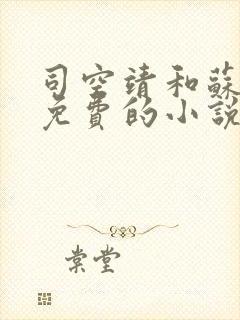 司空靖和蘇
免費的小說
棠堂